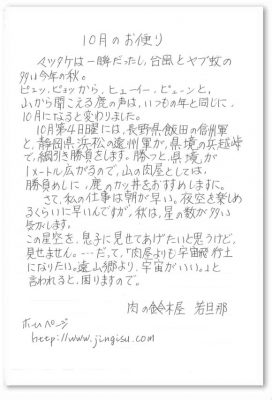 10月のお便り
マツタケは一瞬だったし、台風とヤブ蚊の
多い今年の秋。
ピュッ、ピョッから、ヒューイー、ピューンと。
山から聞こえる鹿の声は、いつもの年と同じに、
10月になると変わりました。
10月第4日曜には、長野県飯田の信州軍
と、静岡県浜松の遠州軍が、県境の兵越峠
で、綱引き勝負をします。勝つと、県境が
1メートル広がるので、山の肉屋としては、
勝負めしに、鹿のカツ丼をおすすめします。
さて、私の仕事は朝が早い。夜空を楽しめ
るくらいに早いんですが、秋は、星の数が多い
気がします。
この星空を、息子に見せてあげたいと思うけど、
見せません。…だって、「肉屋よりも宇宙飛行士
になりたい。遠山郷より、宇宙がいい。」と
言われると、困りますので。
肉の鈴木屋 若旦那
ホームページ
http://www.jingisu.com